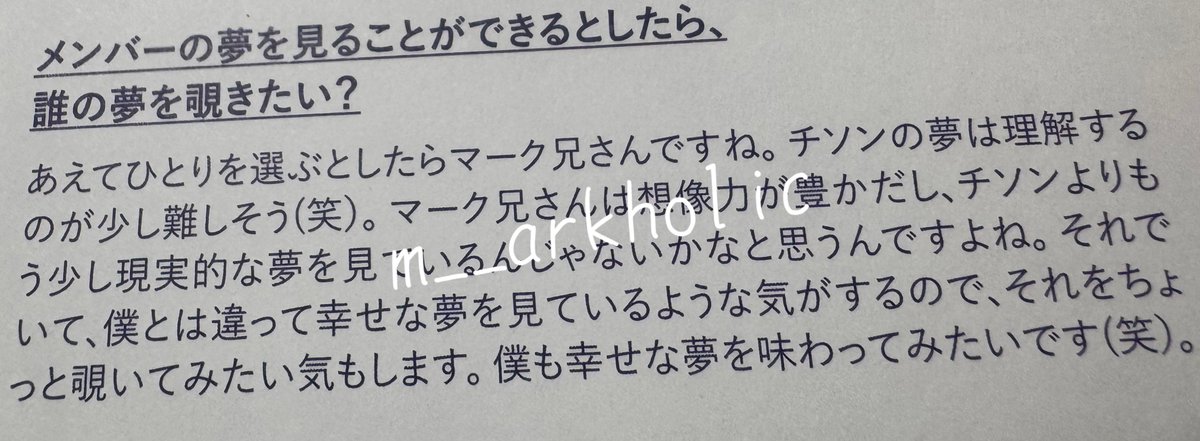 メンバーの夢を見ることができるとしたら、
誰の夢を覗きたい？
あえてひとりを選ぶとしたらマーク兄さんですね。チソンの夢は理解する
のが少し難しそう(笑)。マーク兄さんは想像力が豊かだし、チソンよりも
う少し現実的な夢を見ているんじゃないかなと思うんですよね。それで
いて、僕とは違って幸せな夢を見ているような気がするので、それをちょ
っと覗いてみたい気もします。僕も幸せな夢を味わってみたいです(笑)。
m__arkholic